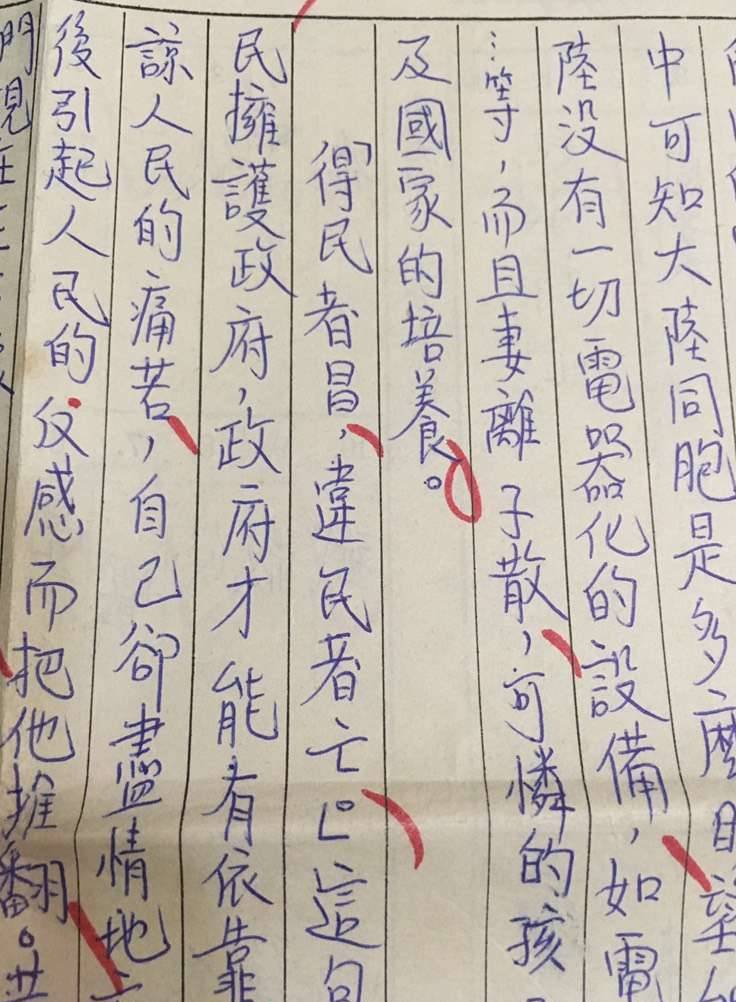 中可知大陸同胞是多麼盼望
陸没有一切電器化的設備，如電
…等，而且妻離子散，可憐的孩
及國家的培養。
「得民者昌，違民者亡」這句
民擁護政府，政府才能有依靠
諒人民的痛苦，自己卻盡情地
後引起人民的反感而把他推翻。共
門現在